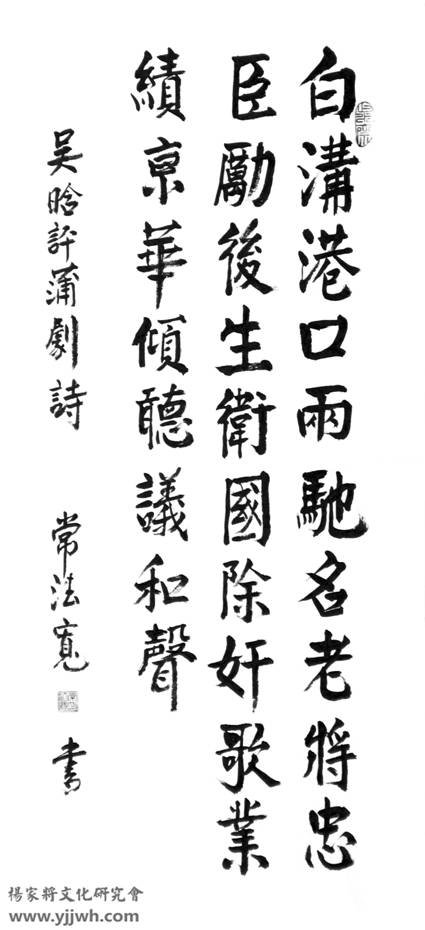 白溝港口兩馳名老將忠
臣勵後生衛國除奸歌業
績京華傾聽議和聲
吴晗評蒲劇詩 常法寬 書
楊家將文化研究會
www.yjjwh.com